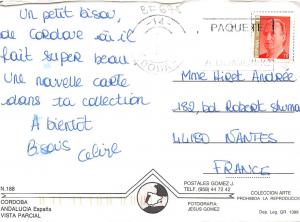 Un petit bisou,
de Cordoue où il
fait super beau
une nouvelle carte
dans ta collection
A bientôt
Bisous Celine
PAQUETE
Mme Hiret Andrée
182, bd Robert Shuman
44180 NANTES
FRANCE
N.188
CORDOBA
ANDALUCIA España
VISTA PARCIAL
POSTALES GOMEZ J.
TELF. (958) 44 72 42
FOTOGRAFIA:
JESUS GOMEZ
COLECCION ARTE
PROHIBIDA LA REPRODUC
Dep. Leg. GR 1098